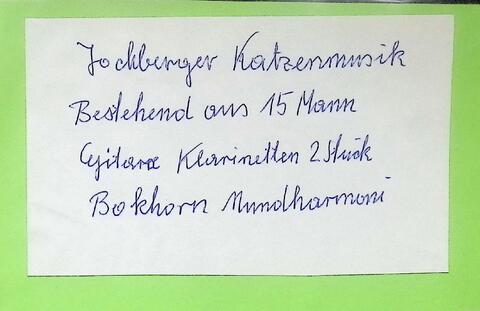 Jochberger Katzenmusik
Bestehend aus 15 Mann
Gitarre Klarinetten 2 Stück
Bokhorn Mundharmoni